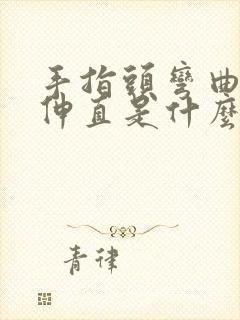 手指頭彎曲
伸直是什麼
青律